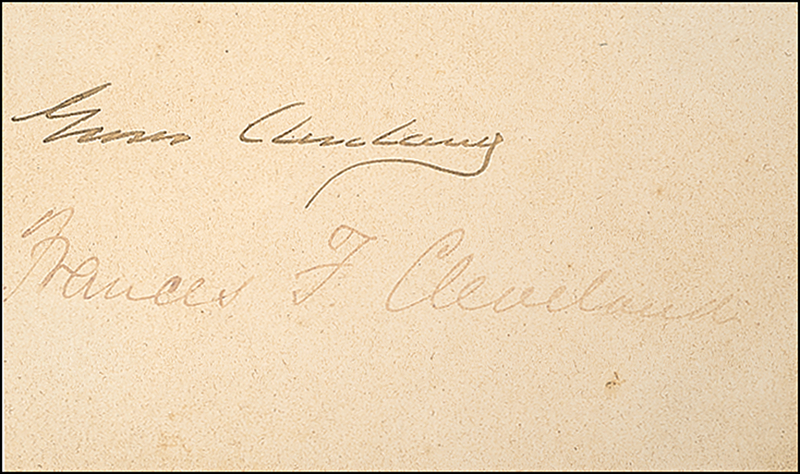 Grover Cleveland
Frances F. Cleveland